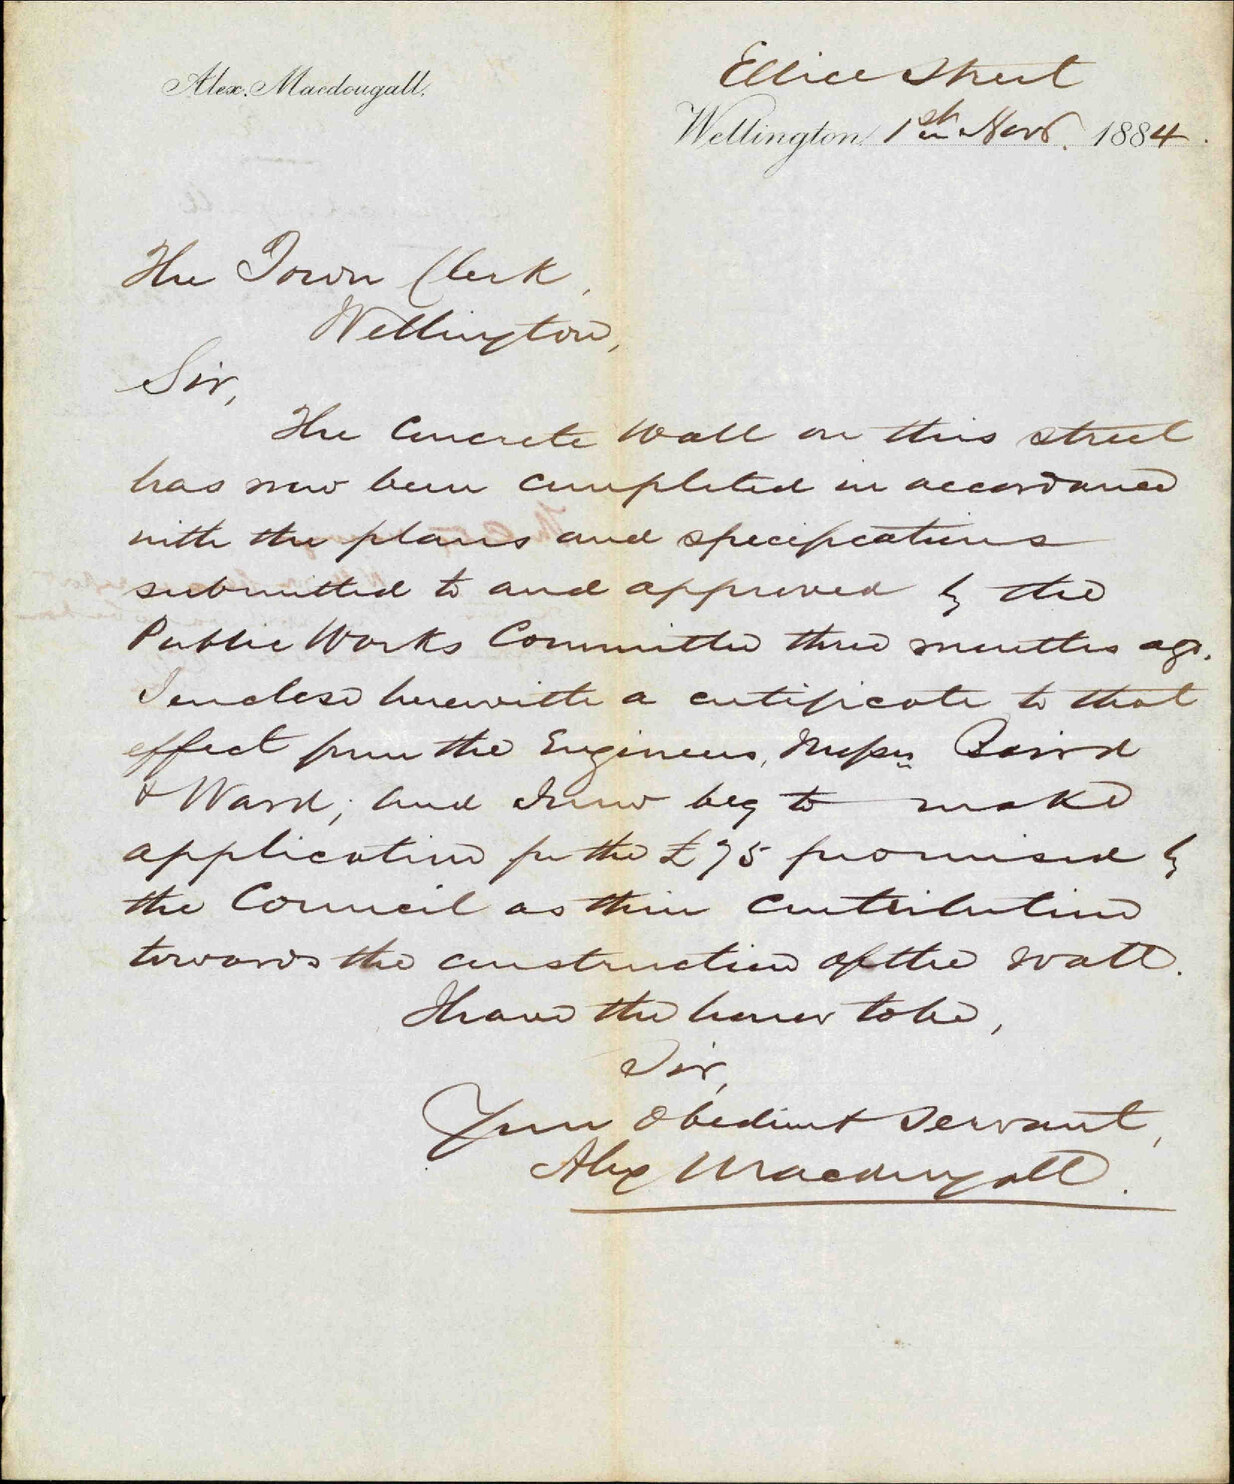 Alex. Macdougall.
Ellice Street
Wellington, 1st Novr. 1884.
The Town Clerk,
Wellington,
Sir,
The Concrete Wall on this street
has now been completed in accordance
with the plans and specifications
submitted to and approved by the
Public Works Committee three months ago.
I enclose herewith a certificate to that
effect from the Engineers, Messrs Baird
& Ward; and I now beg to make
application for the £75 promised by
the Council as their contribution
towards the construction of the wall.
I have the honor to be,
Sir,
Your obedient servant,
Alex Macdougall.